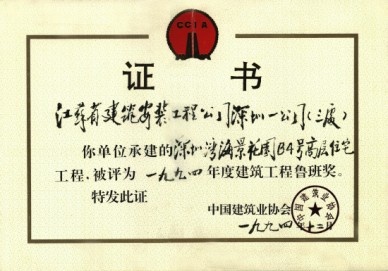 CCIA
证书
江苏省建筑安装工程公司深圳一公司(三度)
你单位承建的深圳湾海景花园B4号高层住宅
工程,被评为一九九四年度建筑工程鲁班奖。
特发此证
中国建筑业协会
一九九四年十二月
中国建筑业协会